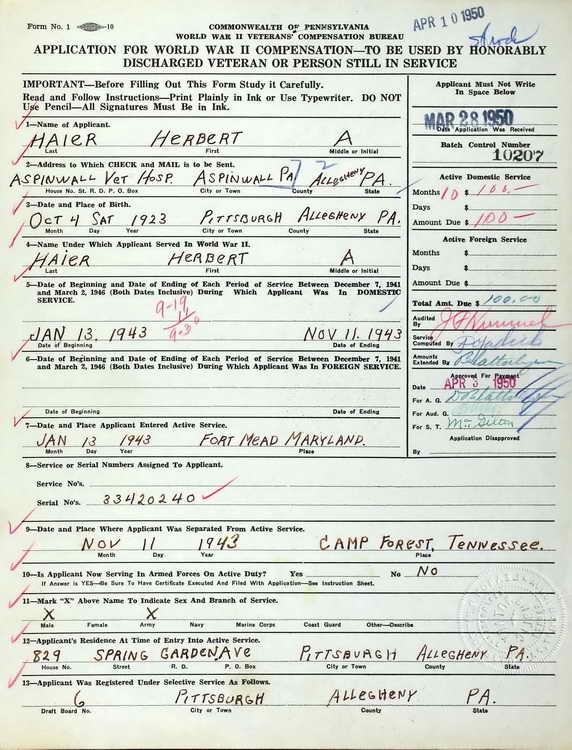 Form No. 1 -10
COMMONWEALTH OF PENNSYLVANIA
WORLD WAR II VETERANS' COMPENSATION BUREAU
APR 10 1950
APPLICATION FOR WORLD WAR II COMPENSATION—TO BE USED BY HONORABLY
DISCHARGED VETERAN OR PERSON STILL IN SERVICE
IMPORTANT—Before Filling Out This Form Study it Carefully.
Read and Follow Instructions—Print Plainly in Ink or Use Typewriter. DO NOT
Use Pencil—All Signatures Must Be in Ink.
Applicant Must Not Write
In Space Below
MAR 28 1950
Date Application Was Received
Batch Control Number
10207
1—Name of Applicant.
HAIER HERBERT A
Last First Middle or Initial
2—Address to Which CHECK and MAIL is to be Sent.
ASPINWALL VET HOSP. ASPINWALL PA ALLEGHENY PA.
House No. St. R. D. P. O. Box City or Town County State
3—Date and Place of Birth.
OCT 4 SAT 1923 PITTSBURGH ALLEGHENY PA.
Month Day Year City or Town County State
4—Name Under Which Applicant Served In World War II.
HAIER HERBERT A
Last First Middle or Initial
5—Date of Beginning and Date of Ending of Each Period of Service Between December 7, 1941
and March 2, 1946 (Both Dates Inclusive) During Which Applicant Was In DOMESTIC
SERVICE.
9-19
11
9-30
JAN 13. 1943 NOV 11. 1943
Date of Beginning Date of Ending
6—Date of Beginning and Date of Ending of Each Period of Service Between December 7, 1941
and March 2, 1946 (Both Dates Inclusive) During Which Applicant Was In FOREIGN SERVICE.
Date of Beginning Date of Ending
7—Date and Place Applicant Entered Active Service.
JAN 13 1943 FORT MEAD MARYLAND.
Month Day Year Place
Active Domestic Service
Months 10 $ 100.—
Days $
Amount Due $ 100—
Active Foreign Service
Months $
Days $
Amount Due $
Total Amt. Due $ 100.00
Audited By
Service Computed By
Amounts Extended By
Approved For Payment
Date APR 3 1950
For A. G.
For Aud. G.
For S. T.
Application Disapproved
By
8—Service or Serial Numbers Assigned To Applicant.
Service No's.
Serial No's. 33420240
9—Date and Place Where Applicant Was Separated From Active Service.
NOV 11 1943 CAMP FOREST, TENNESSEE.
Month Day Year Place
10—Is Applicant Now Serving In Armed Forces On Active Duty? Yes No NO
If Answer is YES—Be Sure To Have Certificate Executed And Filed With Application—See Instruction Sheet.
11—Mark "X" Above Name To Indicate Sex and Branch of Service.
X X
Male Female Army Navy Marine Corps Coast Guard Other—Describe
12—Applicant's Residence At Time of Entry Into Active Service.
829 SPRING GARDEN AVE PITTSBURGH ALLEGHENY PA.
House No. Street R. D. P. O. Box City or Town County State
13—Applicant Was Registered Under Selective Service As Follows.
6 PITTSBURGH ALLEGHENY PA.
Draft Board No. City or Town County State